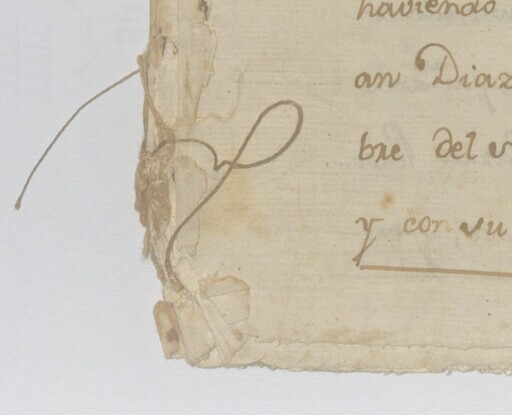 haviendo
an Diaz
bre del v
y con su